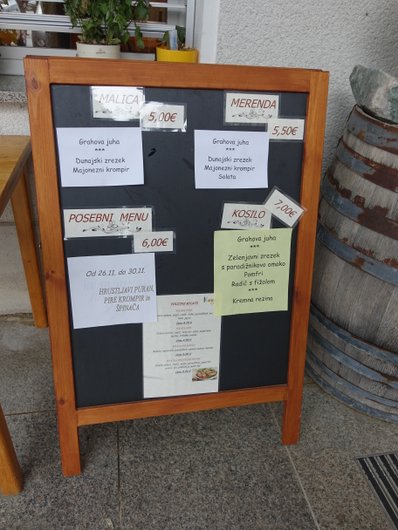 MALICA
5,00€
Grahova juha
***
Dunajski zrezek
Majonezni krompir
MERENDA
5,50€
Grahova juha
***
Dunajski zrezek
Majonezni krompir
Solata
POSEBNI MENU
6,00€
Od 26.11. do 30.11.
HRUSTLJAVI PURAN,
PIRE KROMPIR in
ŠPINAČA
KOSILO
7,00€
Grahova juha
***
Zelenjavni zrezek
s paradižnikovo omako
Pomfri
Radič s fižolom
***
Kremna rezina